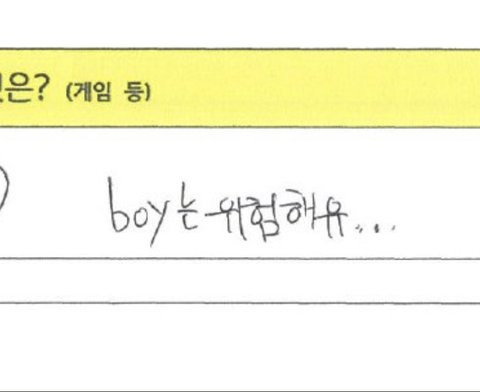 것은? (게임 등)
boy는 위험해유...